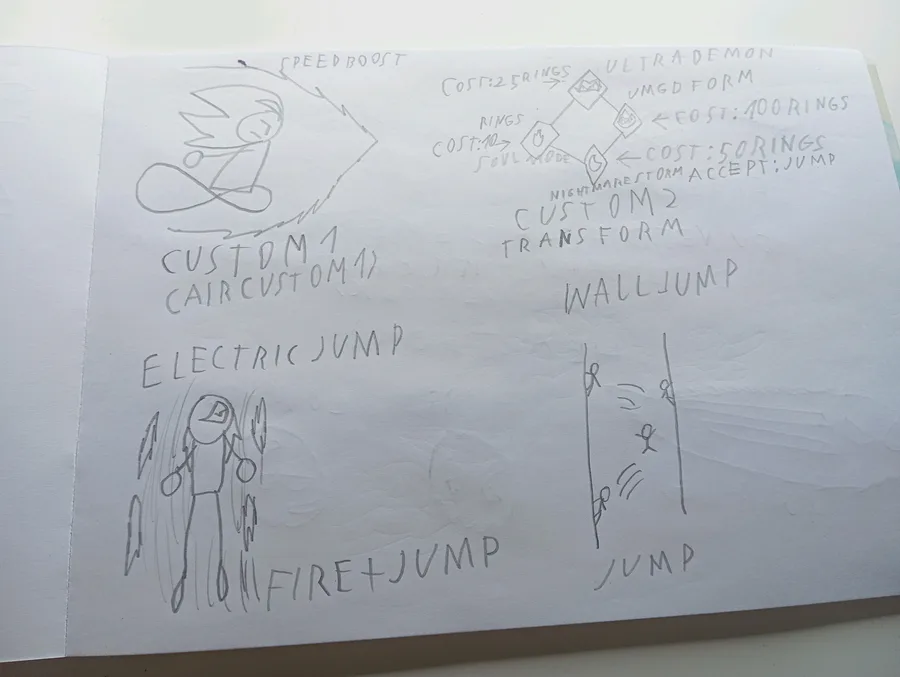 SPEEDBOOST
CUSTOM 1
(AIR CUSTOM 1)
ULTRA DEMON
COST:25RINGS→
UMGD FORM
←COST:100RINGS
RINGS
COST:10→
SOUL MODE
←COST:50RINGS
NIGHTMARESTORM
ACCEPT:JUMP
CUSTOM 2
TRANSFORM
ELECTRIC JUMP
FIRE+JUMP
WALLJUMP
JUMP